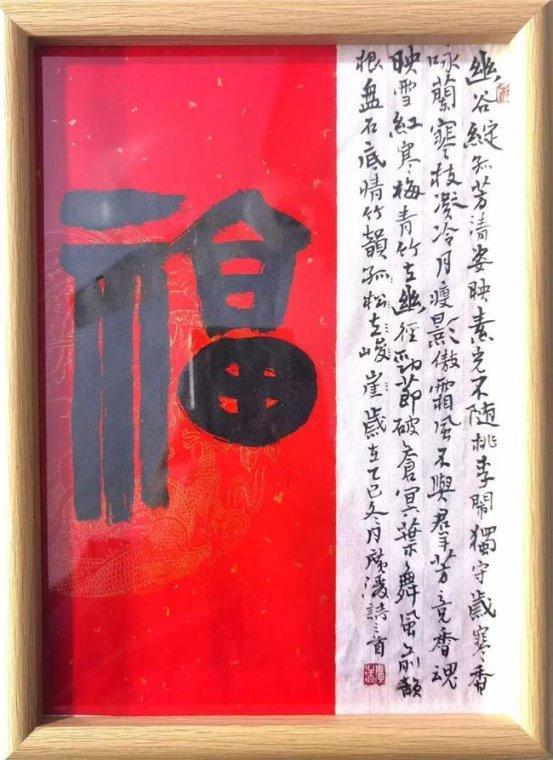 福
幽谷綻孤芳清姿映素光不隨桃李鬧獨守歲寒香
咏蘭寒枝凝冷月瘦影傲霜風不與羣芳竞香魂
映雪紅寒梅青竹立幽徑勁節破蒼冥葉舞風前韻
根盤石底情竹韻孤松立峻崖歲在乙巳冬月詩三首